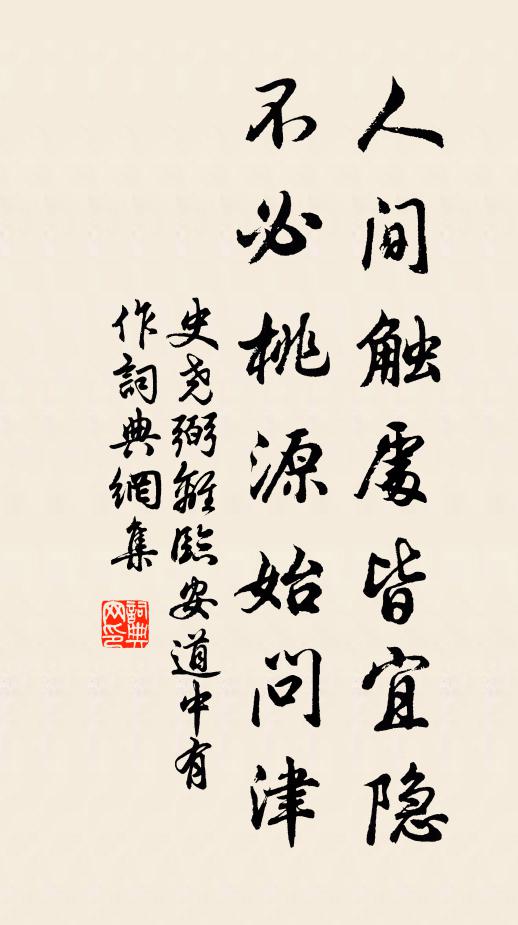 人间触處皆宜隐
不必桃源始问津
史尧弼離臨安道中有
作詞典網集
詞典网印